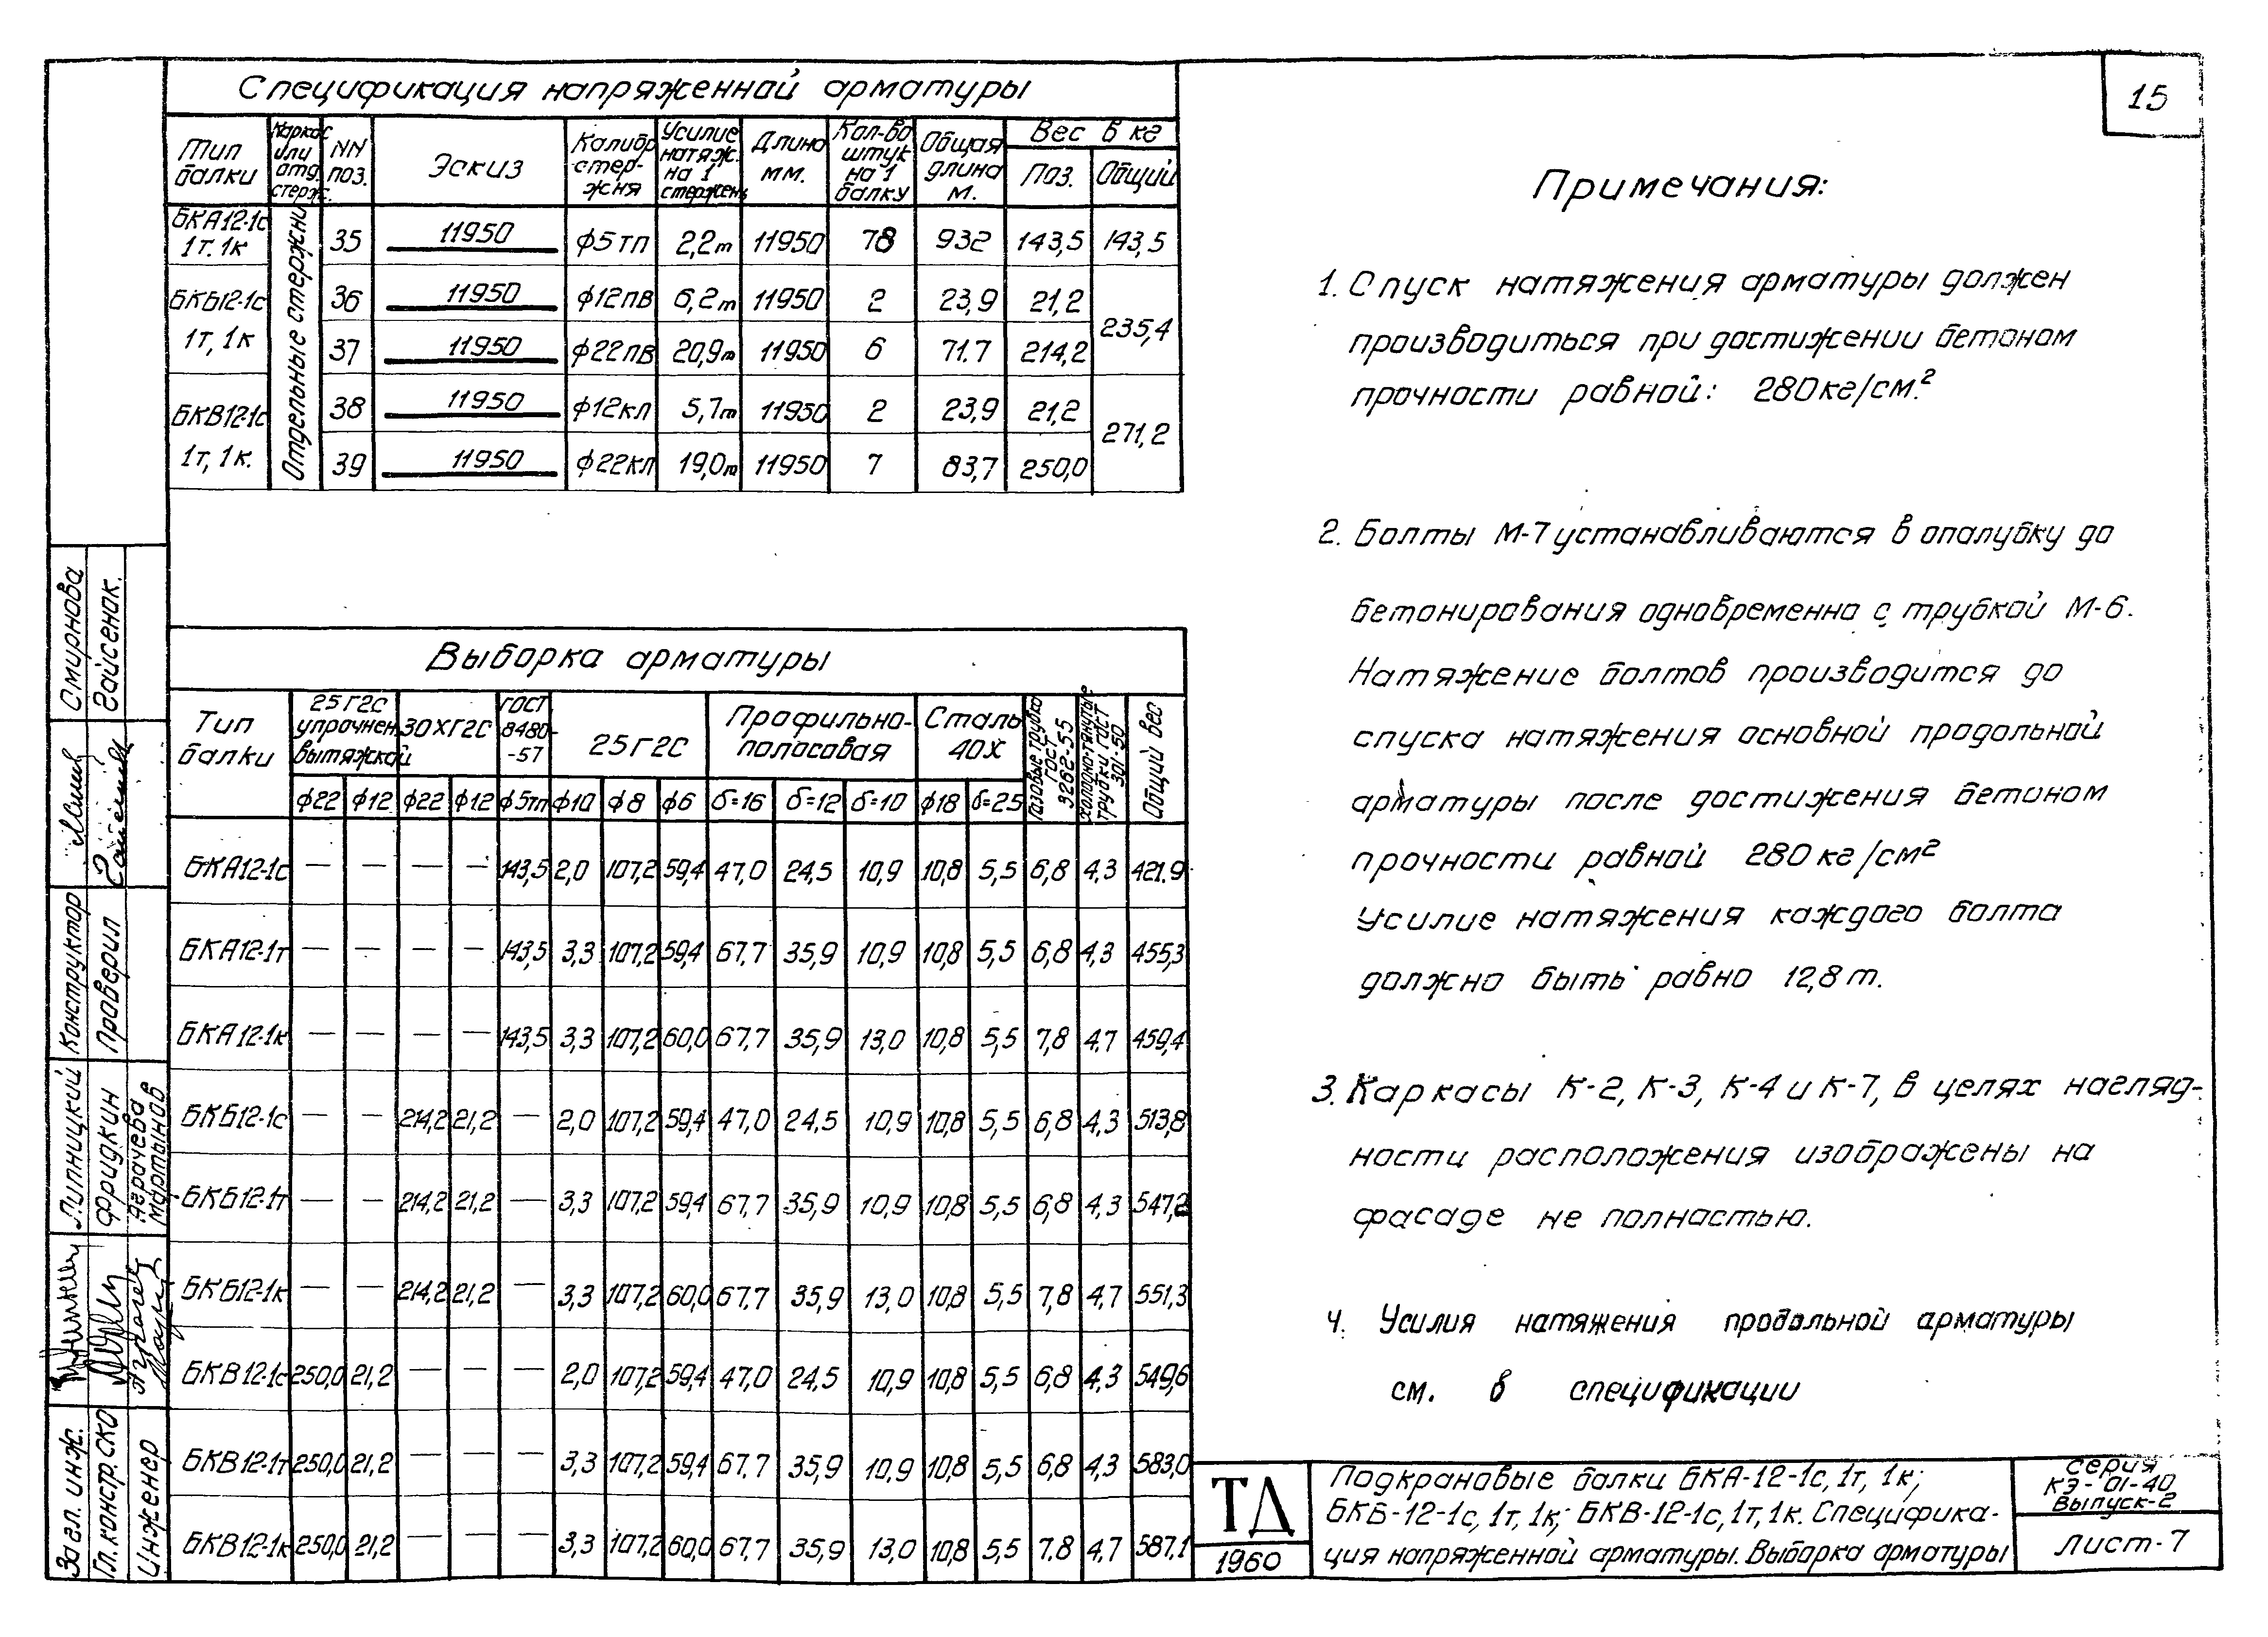 15
Спецификация напряженной арматуры
Тип балки | Каркас или отд. стерж. | NN поз. | Эскиз | Калибр стержня | Усилие натяж. на 1 стержень | Длина мм. | Кол-во штук на 1 балку | Общая длина м. | Вес в кг
Поз. | Общий
Отдельные стержни
БКА12-1с 1т. 1к | 35 | 11950 | ф5тп | 2,2т | 11950 | 78 | 932 | 143,5 | 143,5
БКБ12-1с 1т, 1к | 36 | 11950 | ф12пв | 6,2т | 11950 | 2 | 23,9 | 21,2 | 235,4
37 | 11950 | ф22пв | 20,9т | 11950 | 6 | 71.7 | 214,2
БКВ12-1с 1т, 1к. | 38 | 11950 | ф12кл | 5,7т | 11950 | 2 | 23,9 | 21,2 | 271,2
39 | 11950 | ф22кл | 19,0т | 11950 | 7 | 83,7 | 250,0
Выборка арматуры
Тип балки | 25Г2С упрочнен. вытяжкой | 30ХГ2С | ГОСТ 8480-57 | 25Г2С | Профильно-полосовая | Сталь 40Х | Газовые трубки ГОСТ 3262-55 | Холоднотянутые трубки ГОСТ 301-50 | Общий вес
ф22 | ф12 | ф22 | ф12 | ф5тп | ф10 | ф8 | ф6 | δ=16 | δ=12 | δ=10 | ф18 | δ=25
БКА12-1с | — | — | — | — | 143,5 | 2,0 | 107,2 | 59,4 | 47,0 | 24,5 | 10,9 | 10,8 | 5,5 | 6,8 | 4,3 | 421.9
БКА12-1т | — | — | — | — | 143,5 | 3,3 | 107,2 | 59,4 | 67,7 | 35,9 | 10,9 | 10,8 | 5,5 | 6,8 | 4,3 | 455,3
БКА12-1к | — | — | — | — | 143,5 | 3,3 | 107,2 | 60,0 | 67,7 | 35,9 | 13,0 | 10,8 | 5,5 | 7,8 | 4,7 | 459,4
БКБ12-1с | — | — | 214,2 | 21,2 | — | 2,0 | 107,2 | 59,4 | 47,0 | 24,5 | 10,9 | 10,8 | 5,5 | 6,8 | 4,3 | 513,8
БКБ12-1т | — | — | 214,2 | 21,2 | — | 3,3 | 107,2 | 59,4 | 67,7 | 35,9 | 10,9 | 10,8 | 5,5 | 6,8 | 4,3 | 547,2
БКБ12-1к | — | — | 214,2 | 21,2 | — | 3,3 | 107,2 | 60,0 | 67,7 | 35,9 | 13,0 | 10,8 | 5,5 | 7,8 | 4,7 | 551,3
БКВ12-1с | 250,0 | 21,2 | — | — | — | 2,0 | 107,2 | 59,4 | 47,0 | 24,5 | 10,9 | 10,8 | 5,5 | 6,8 | 4,3 | 549,6
БКВ12-1т | 250,0 | 21,2 | — | — | — | 3,3 | 107,2 | 59,4 | 67,7 | 35,9 | 10,9 | 10,8 | 5,5 | 6,8 | 4,3 | 583,0
БКВ12-1к | 250,0 | 21,2 | — | — | — | 3,3 | 107,2 | 60,0 | 67,7 | 35,9 | 13,0 | 10,8 | 5,5 | 7,8 | 4,7 | 587,1
Примечания:
1. Спуск натяжения арматуры должен
производиться при достижении бетоном
прочности равной: 280кг/см.²
2. Болты М-7 устанавливаются в опалубку до
бетонирования одновременно с трубкой М-6.
Натяжение болтов производится до
спуска натяжения основной продольной
арматуры после достижения бетоном
прочности равной 280 кг/см²
Усилие натяжения каждого болта
должно быть равно 12,8 т.
3. Каркасы К-2, К-3, К-4 и К-7, в целях нагляд-
ности расположения изображены на
фасаде не полностью.
4. Усилия натяжения продольной арматуры
см. в спецификации
ТД
1960
Подкрановые балки БКА-12-1с, 1т, 1к;
БКБ-12-1с, 1т, 1к; БКВ-12-1с, 1т, 1к. Специфика-
ция напряженной арматуры. Выборка арматуры
серия
КЭ-01-40
Выпуск-2
Лист-7
Смирнова
Гайсенок.
Конструктор
Проверил
Липницкий
Фридкин
Аграчева
Мартынов
Заг л. инж.
Гл. констр. СКО
Инженер